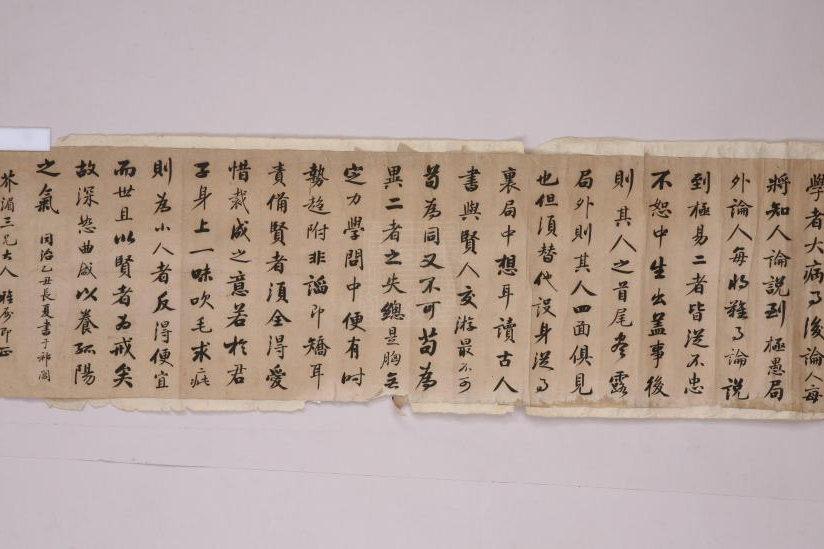 學者大病了後論人每
將知人論說到極愚局
外論人每將難了論說
到極易二者皆從不忠
不恕中生出蓋事後
則其人之首尾盡露
局外則其人四面俱見
也但須替他設身從了
裏局中想耳讀古人
書與賢人交游最不可
苟為同又不可苟為
異二者之失總是胸無
定力學問中便有時
勢趨附非諂即矯耳
責備賢者須全得愛
惜裁成之意若於君
子身上一味吹毛求疵
則為小人者反得便宜
而世且以賢者為戒矣
故深恕曲成以養孤陽
之氣
同治乙丑長夏書于祁閶
三兄大人雅屬即正